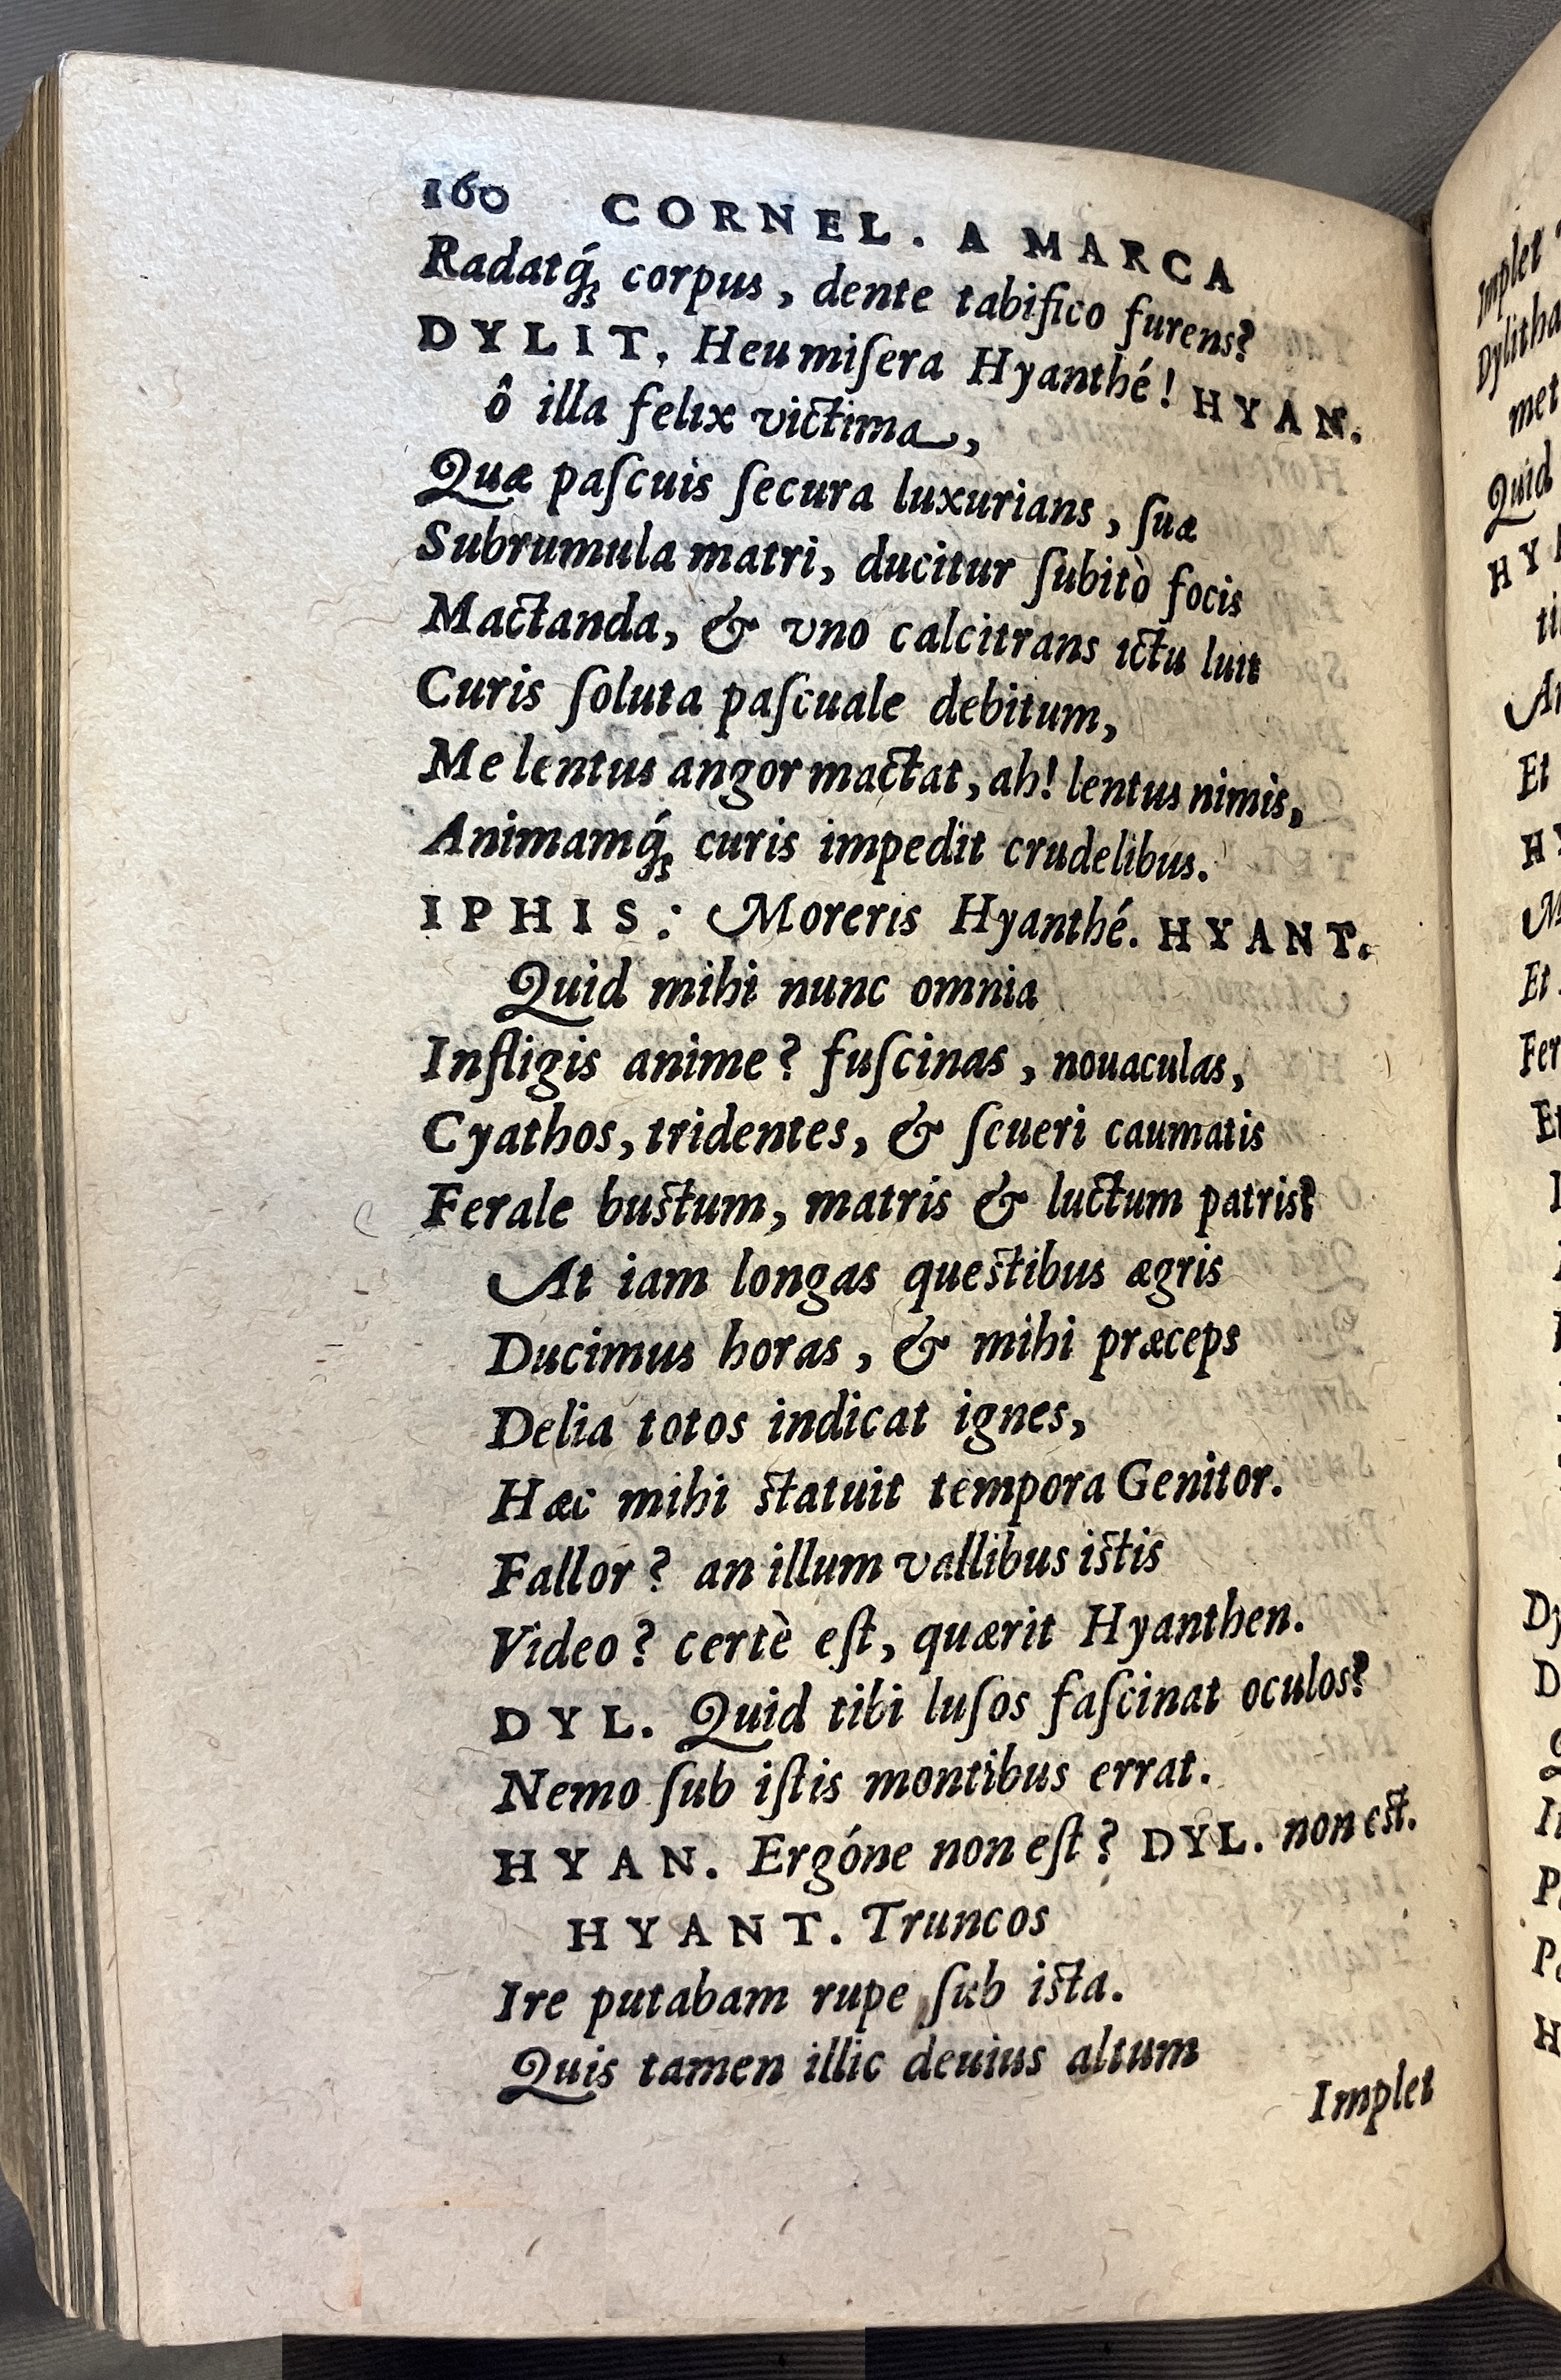 160 CORNEL. A MARCA
Radatq́ꝫ corpus, dente tabifico furens?
DYLIT. Heu miſera Hyanthé! HYAN.
ô illa felix victima,
Quæ paſcuis ſecura luxurians, ſuæ
Subrumula matri, ducitur ſubitò focis
Mactanda, & vno calcitrans ictu luit
Curis ſoluta paſcuale debitum,
Me lentus angor mactat, ah! lentus nimis,
Animamq́ꝫ curis impedit crudelibus.
IPHIS: Moreris Hyanthé. HYANT.
Quid mihi nunc omnia
Infligis anime? fuſcinas, nouaculas,
Cyathos, tridentes, & ſeueri caumatis
Ferale bustum, matris & luctum patris?
At iam longas questibus ægris
Ducimus horas, & mihi præceps
Delia totos indicat ignes,
Hæc mihi statuit tempora Genitor.
Fallor? an illum vallibus istis
Video? certè eſt, quærit Hyanthen.
DYL. Quid tibi luſos faſcinat oculos?
Nemo ſub iſtis montibus errat.
HYAN. Ergóne non eſt? DYL. non est.
HYANT. Truncos
Ire putabam rupe ſub ista.
Quis tamen illic deuius altum
Implet
Implet
Dylitha
met
Quid
Et
Et